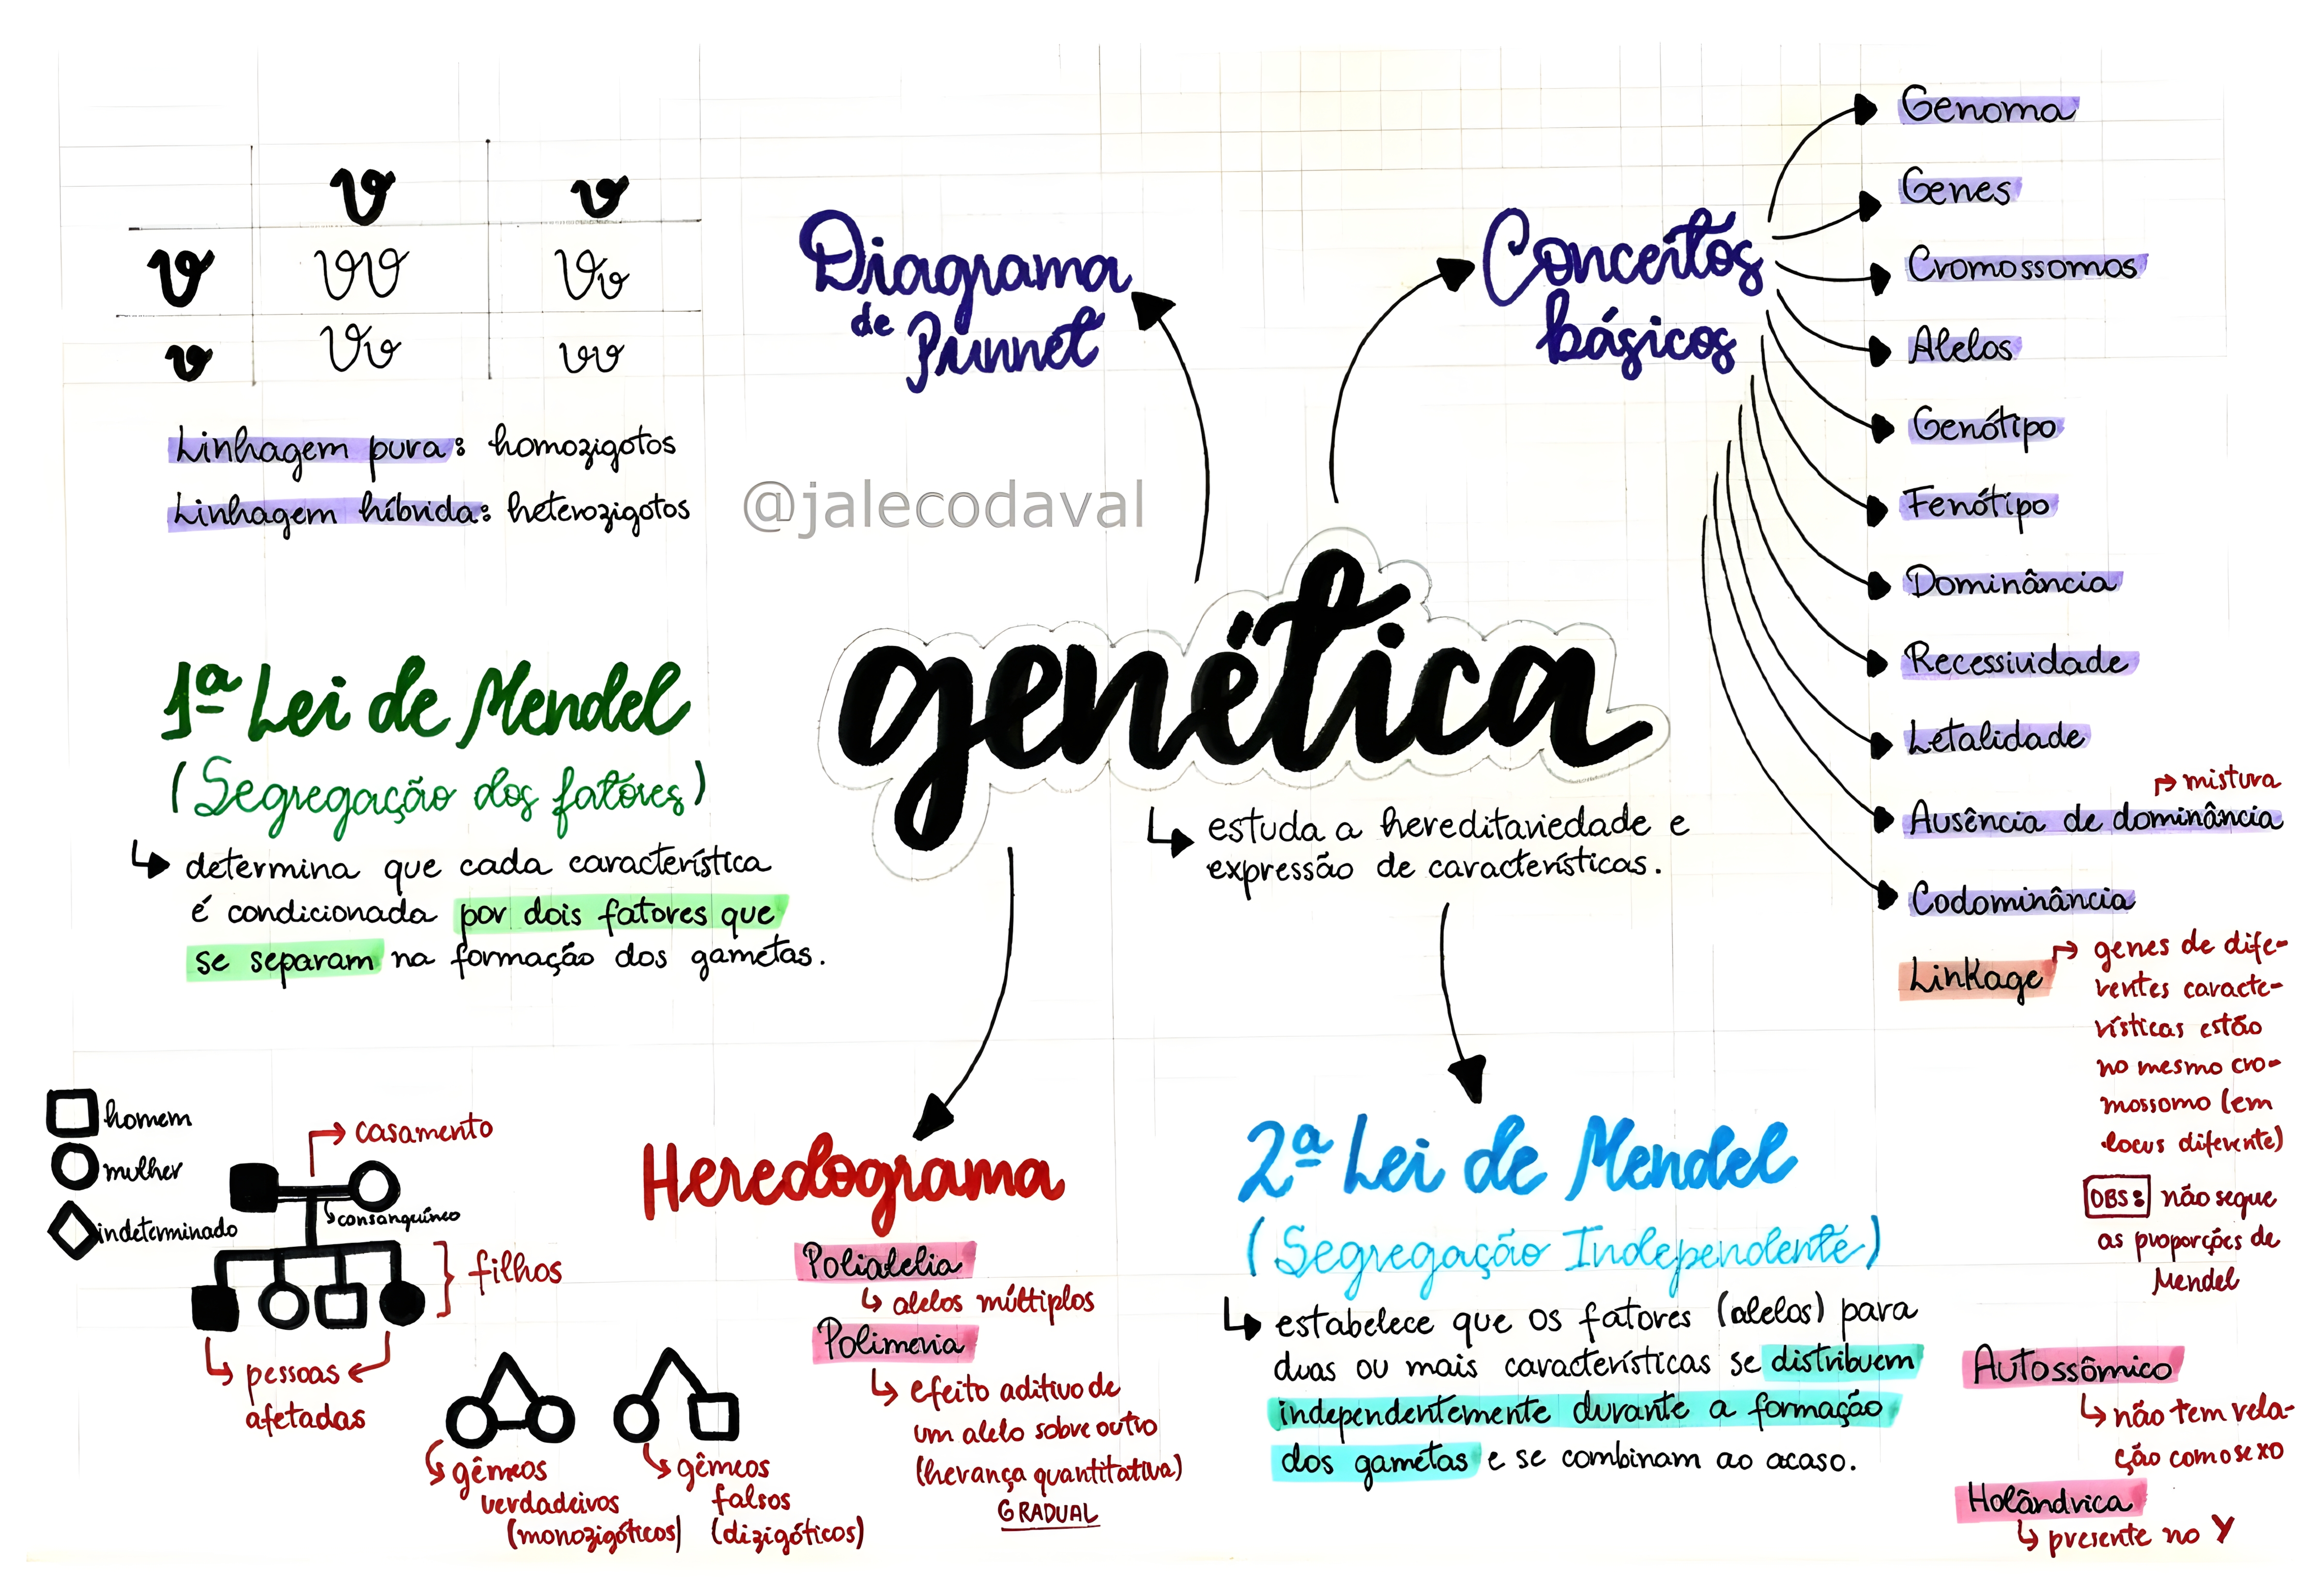 V v
V VV Vv
v Vv vv
Linhagem pura: homozigotos
Linhagem híbrida: heterozigotos
Diagrama
de Punnet
@jalecodaval
Conceitos
básicos
Genoma
Genes
Cromossomos
Alelos
Genótipo
Fenótipo
Dominância
Recessividade
Letalidade
mistura
Ausência de dominância
Codominância
Linkage
genes de dife-
rentes caracte-
rísticas estão
no mesmo cro-
mossomo (em
locus diferente)
OBS: não segue
as proporções de
Mendel
genética
estuda a hereditariedade e
expressão de características.
1ª Lei de Mendel
(Segregação dos fatores)
determina que cada característica
é condicionada por dois fatores que
se separam na formação dos gametas.
homem
mulher
indeterminado
casamento
consanguíneo
filhos
pessoas
afetadas
gêmeos
verdadeiros
(monozigóticos)
gêmeos
falsos
(dizigóticos)
Heredograma
Polialelia
alelos múltiplos
Polimeria
efeito aditivo de
um alelo sobre outro
(herança quantitativa)
GRADUAL
2ª Lei de Mendel
(Segregação Independente)
estabelece que os fatores (alelos) para
duas ou mais características se distribuem
independentemente durante a formação
dos gametas e se combinam ao acaso.
Autossômico
não tem rela-
ção com o sexo
Holândrica
presente no Y